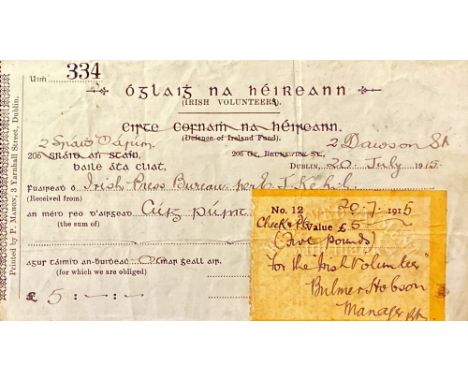 Uim. 334
óglaiġ na héireann
(IRISH VOLUNTEERS).
Ciste Cosnaiṁ na hÉireann.
(Defence of Ireland Fund).
2 Sráid Dásun
2 Dawson St
206 SRÁID AN STAIN,
206 Gt. BRUNSWICK ST.,
baile áta cliat,
DUBLIN, 20 July 1915
Fuaireas ó Irish Press Bureau per
(Received from)
an méid seo d'airgead Cúig púint
(the sum of)
agus táimid an-buideac ḋíoḃ dá ġeall air.
(for which we are obliged)
£ 5 : - : -
Printed by P. Mahon, 3 Yarnhall Street, Dublin.
No. 12 20.7.1915
Value £5
(Five pounds)
for the "Irish Volunteer"
Bulmer Hobson
Manager